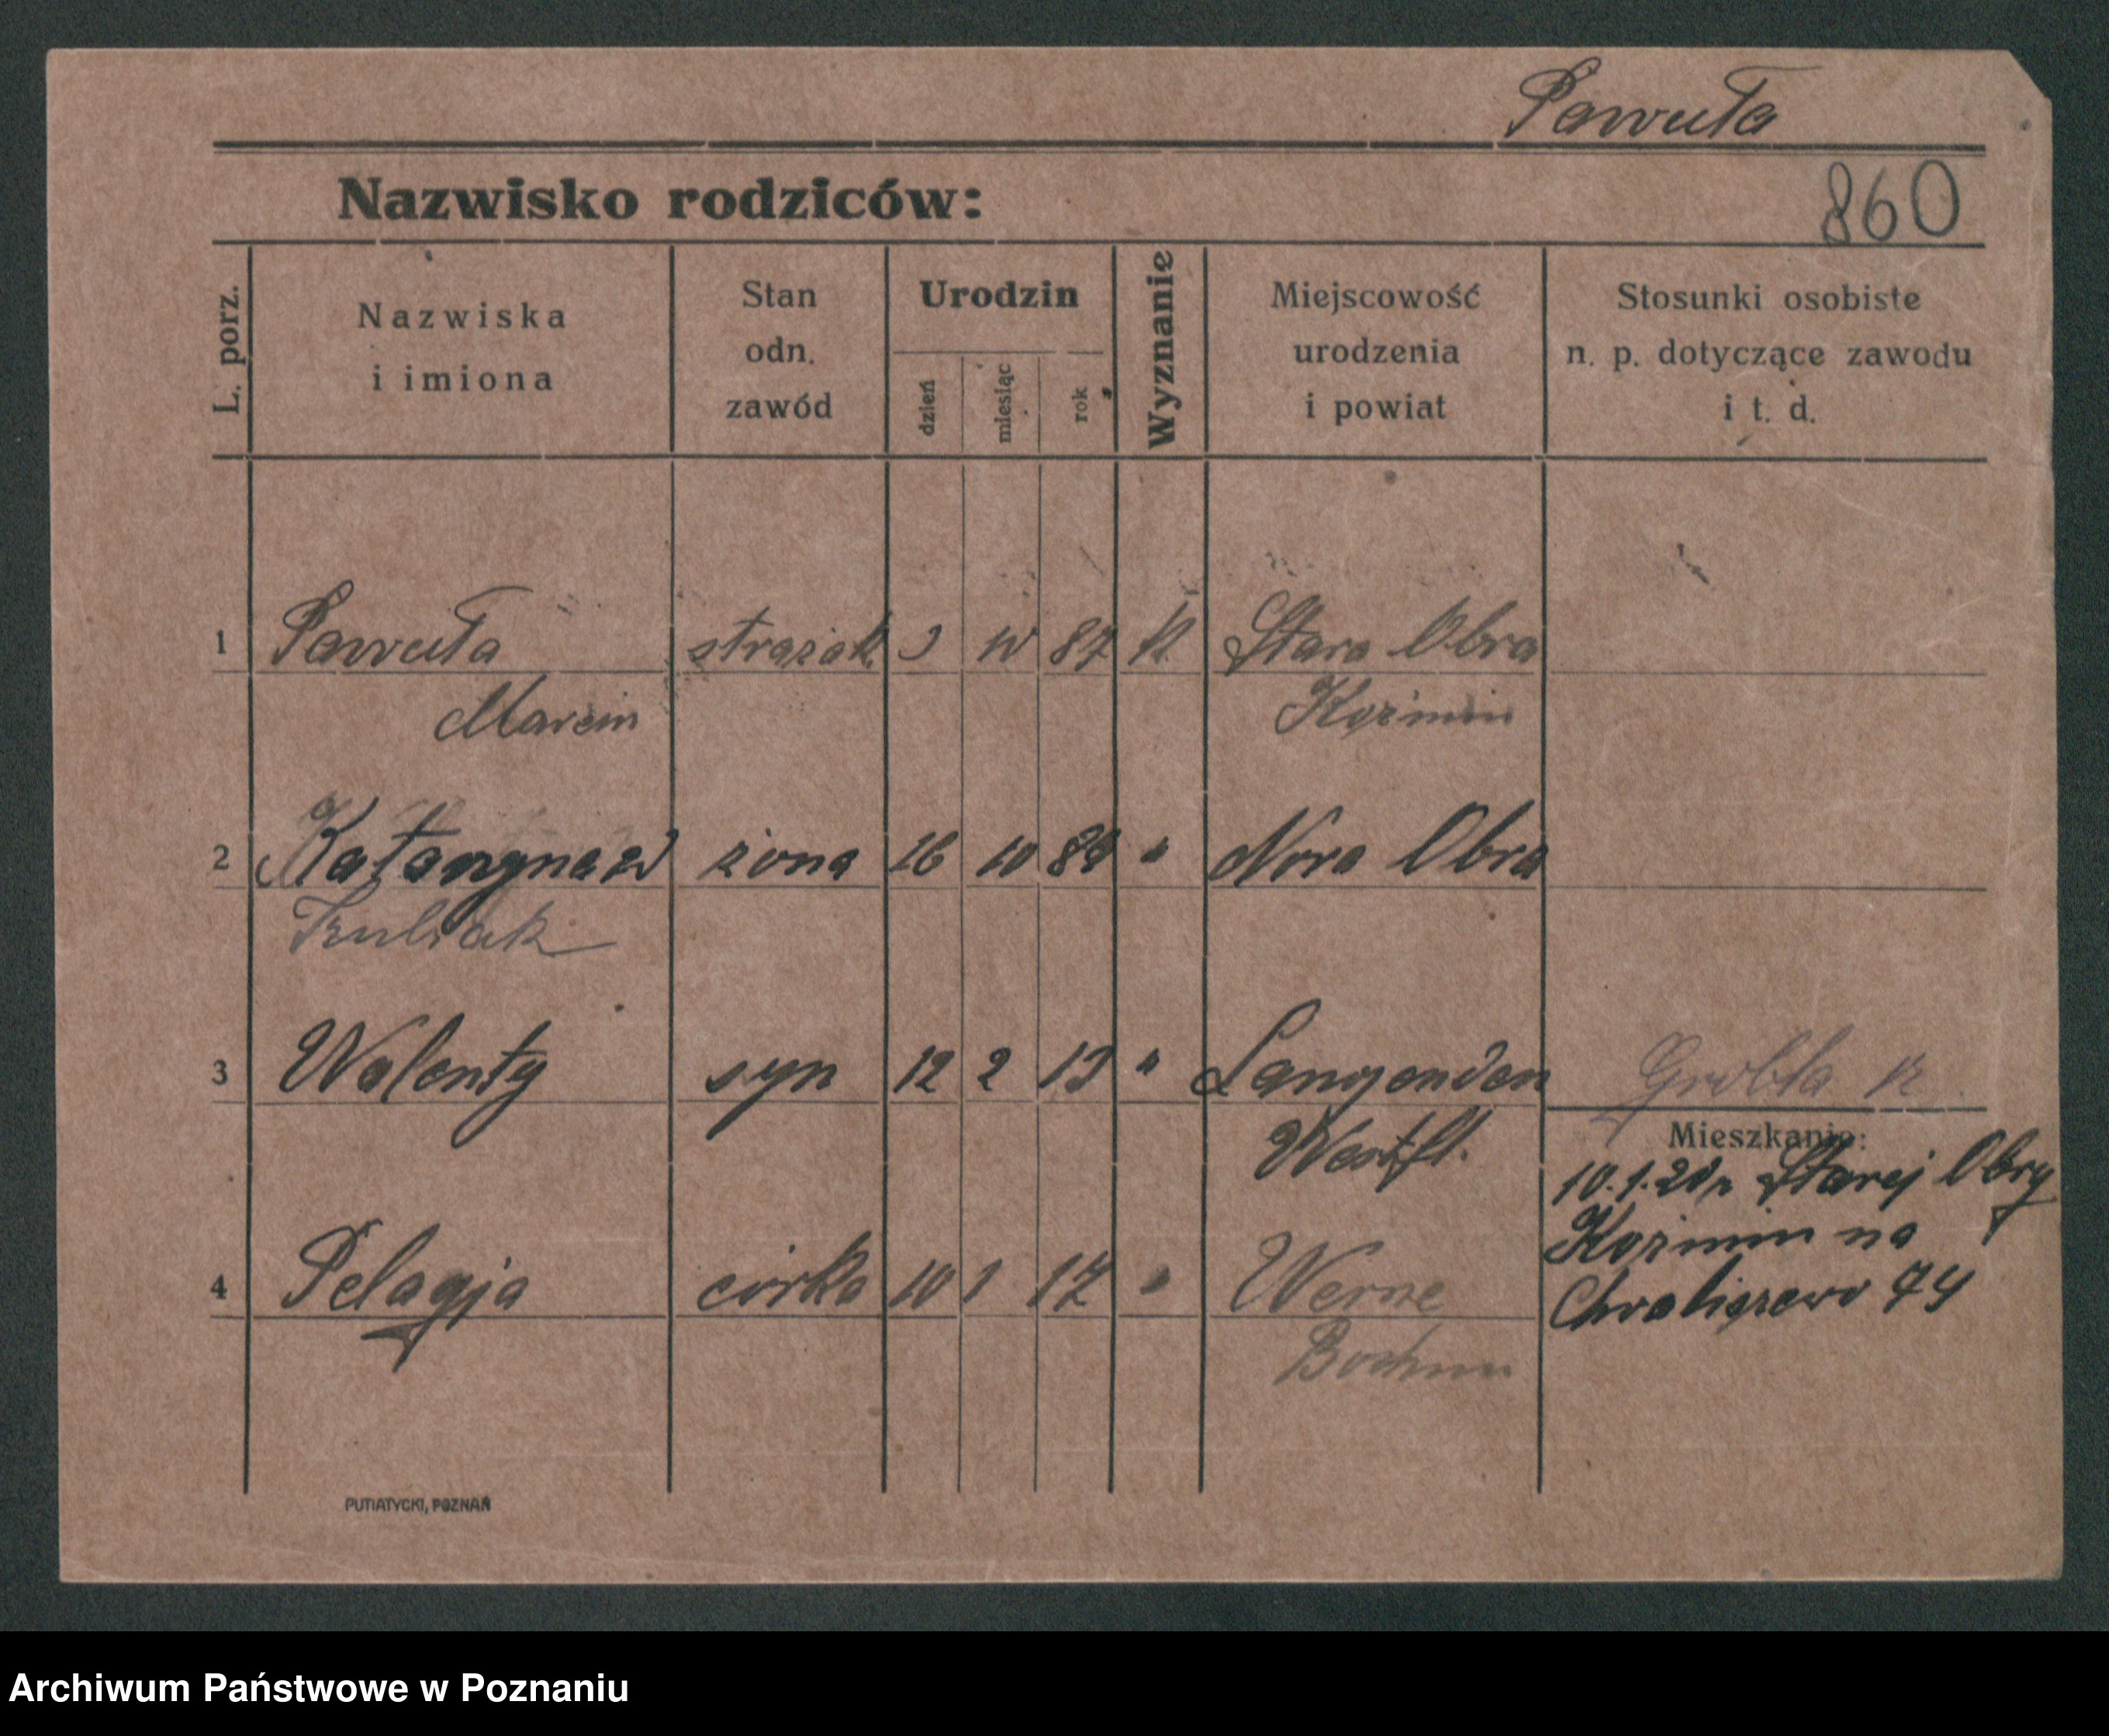 Pawuła
Nazwisko rodziców:
860
L. porz.
Nazwiska
i imiona
Stan
odn.
zawód
Urodzin
dzień
miesiąc
rok
Wyznanie
Miejscowość
urodzenia
i powiat
Stosunki osobiste
n. p. dotyczące zawodu
i t. d.
1 Pawuła strażak 3 10 87 k. Stara Obra
Marcin Koźmin
2 Katarzyna żona 26 10 " Nova Obra
Kubiak
3 Walenty syn 12 2 13 " Langendon
Westfl.
Grobla
Mieszkanie:
10.1.20 z Starej Obry
Koźmin na
Chwaliszewo 74
4 Pelagja córka 10 1 17 " Werne
Bochum
PUTIATYCKI, POZNAŃ
Archiwum Państwowe w Poznaniu